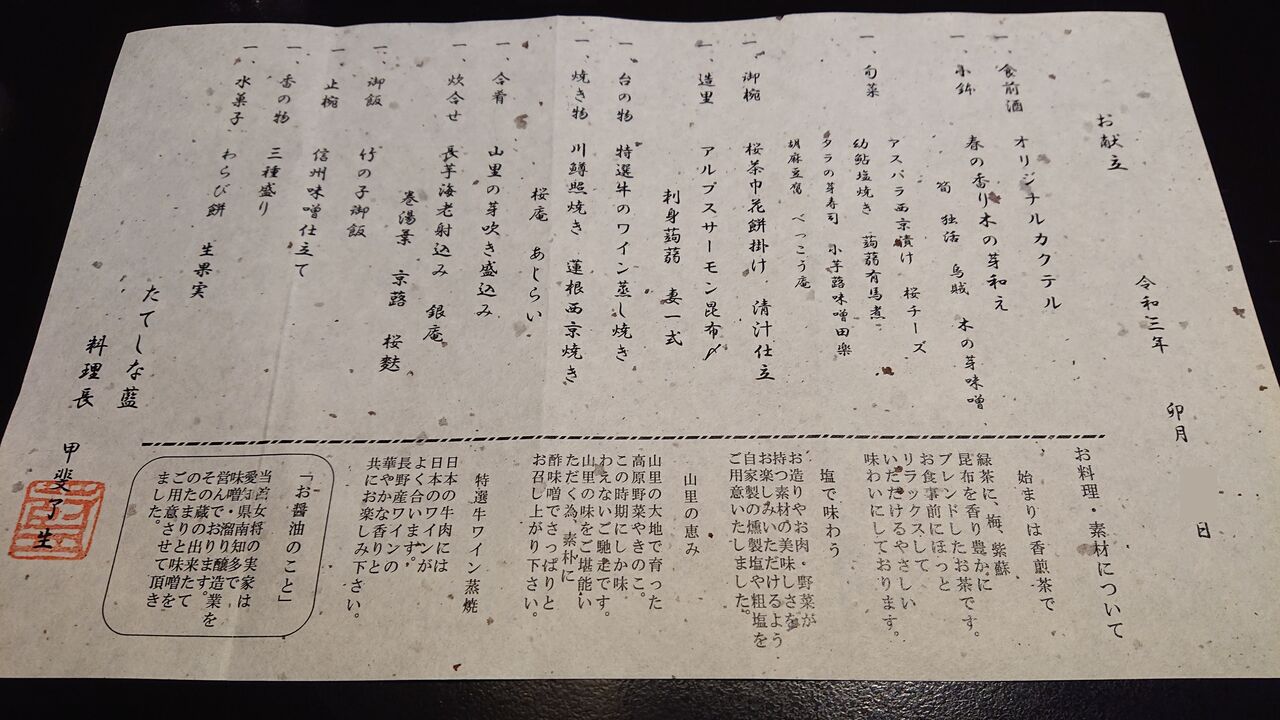 お献立
令和三年 卯月 日
一、食前酒 オリジナルカクテル
一、小鉢 春の香り木の芽和え
筍 独活 烏賊 木の芽味噌
一、旬菜 アスパラ西京漬け 桜チーズ
幼鮎塩焼き 蒟蒻有馬煮
タラの芽寿司 小芋蕗味噌田楽
胡麻豆腐 べっこう庵
一、御椀 桜茶巾花餅掛け 清汁仕立
一、造里 アルプスサーモン昆布〆
刺身蒟蒻 妻一式
一、台の物 特選牛のワイン蒸し焼き
一、焼き物 川鱒照焼き 蓮根西京焼き
桜庵 あしらい
一、合肴 山里の芽吹き盛込み
一、炊合せ 長芋海老射込み 銀庵
巻湯葉 京蕗 桜麩
一、御飯 竹の子御飯
一、止椀 信州味噌仕立て
一、香の物 三種盛り
一、水菓子 わらび餅 生果実
たてしな藍
料理長 甲斐了生
お料理・素材について
始まりは香煎茶で
緑茶に、梅、紫蘇
昆布を香り豊かに
ブレンドしたお茶です。
お食事前にほっと
リラックスして
いただけるやさしい
味わいにしております。
塩で味わう
お造りやお肉・野菜が
持つ素材の美味しさを
お楽しみいただけるよう
自家製の燻製塩や粗塩を
ご用意いたしました。
山里の恵み
山里の大地で育った
高原野菜やきのこ。
この時期にしか味
わえないご馳走です。
山里の味をご堪能い
ただく為、素朴に
酢味噌でさっぱりと
お召し上がり下さい。
特選牛ワイン蒸焼
日本の牛肉には
日本のワインが
よく合います。
長野産ワインの
華やかな香りと
共にお楽しみ下さい。
「お醤油のこと」
当館女将の実家は
愛知県南知多で
味噌・溜り醸造業を
営んでおります。
その蔵の出来たて
のたまりと味噌を
ご用意させて頂き
ました。